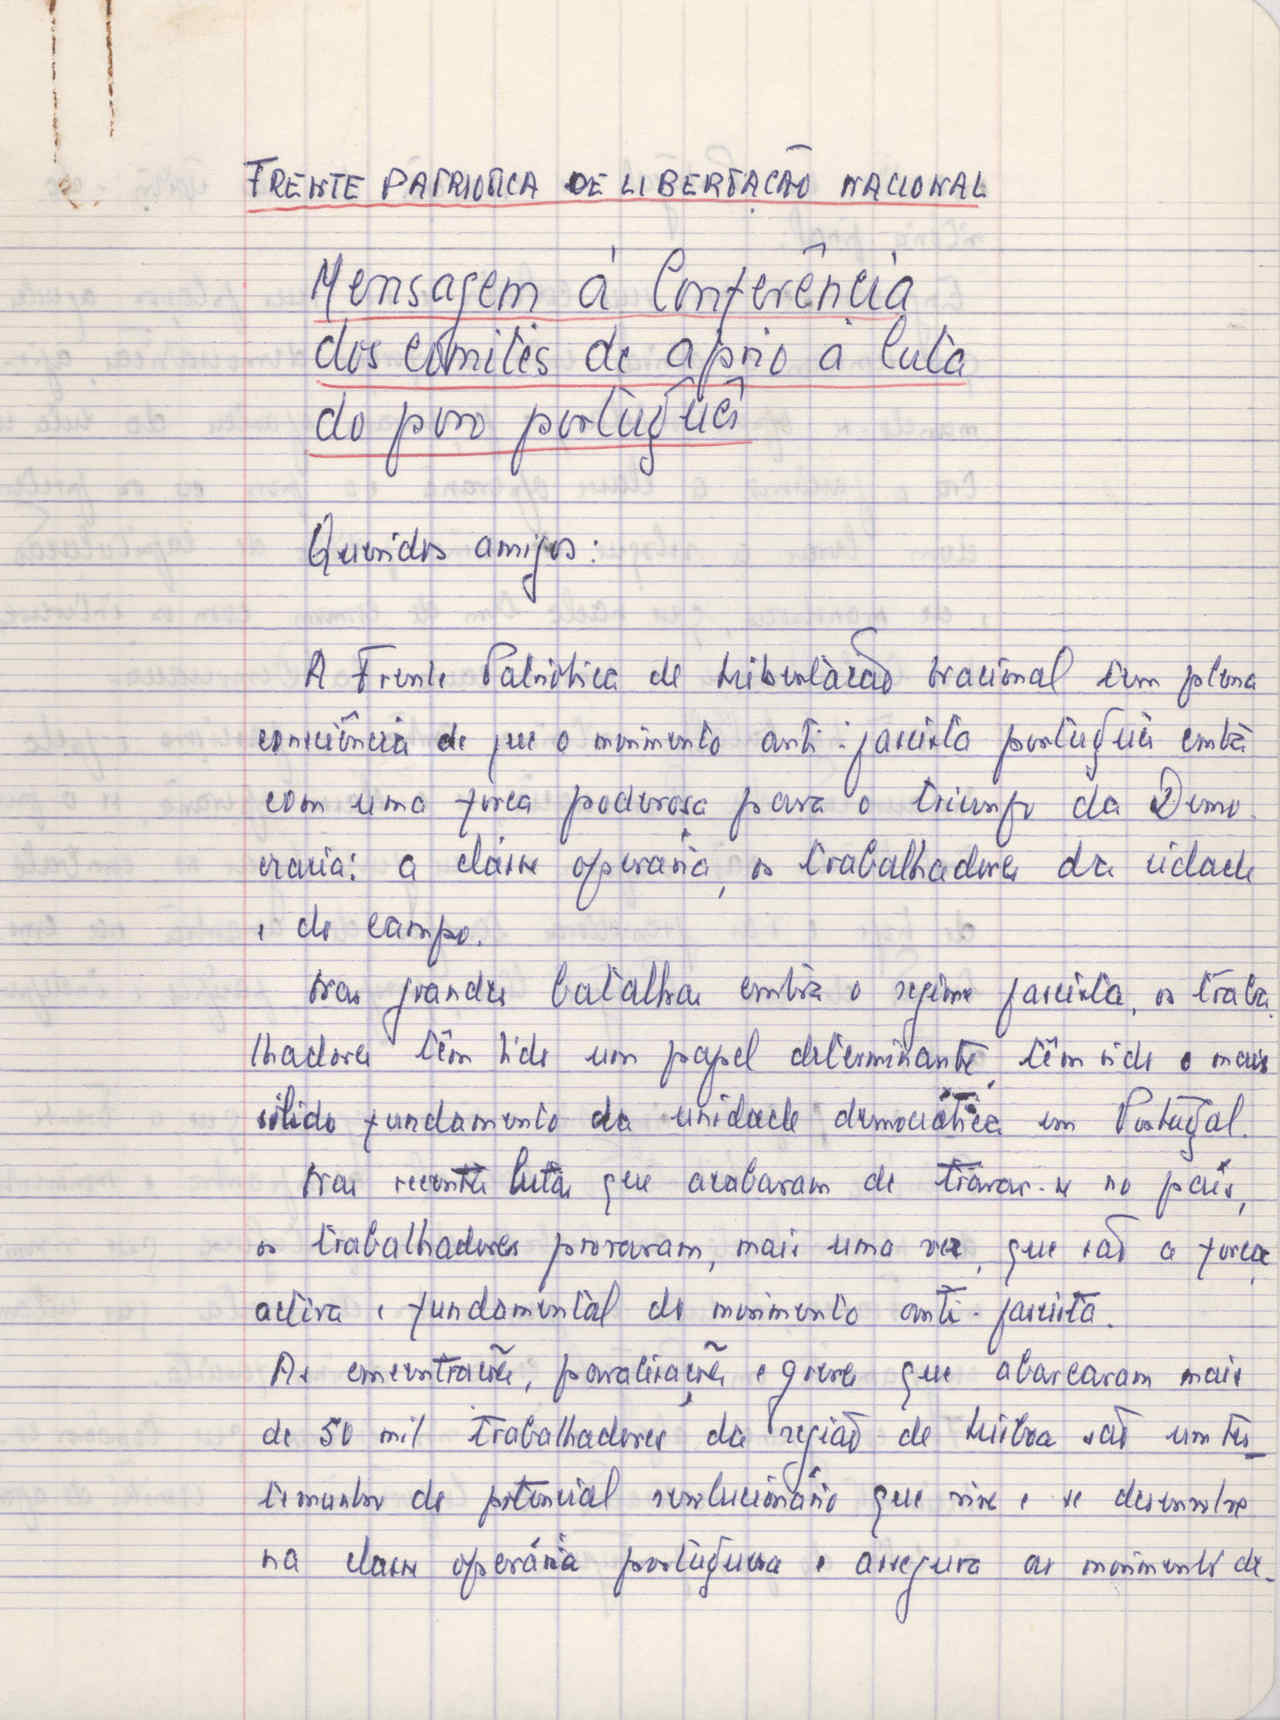 FRENTE PATRIOTICA DE LIBERTAÇÃO NACIONAL
Mensagem á Conferência
dos comités de apoio à luta
do povo português
Queridos amigos:
A Frente Patriótica de Libertação Nacional tem plena
consciência de que o movimento anti-fascista português conta
com uma força poderosa para o triunfo da Demo-
cracia: a classe operária, os trabalhadores da cidade
e do campo.
Nas grandes batalhas contra o regime fascista, os traba-
lhadores têm sido um papel determinante, têm sido o mais
sólido fundamento da unidade democrática em Portugal.
Nas recentes lutas que acabaram de travar-se no país,
os trabalhadores provaram, mais uma vez, que são a força
activa e fundamental do movimento anti-fascista.
As concentrações, paralizações e greves que abarcaram mais
de 50 mil trabalhadores da região de Lisboa são um tes-
temunho do potencial revolucionário que vive e se desenvolve
na classe operária portuguesa e assegura ao movimento de-